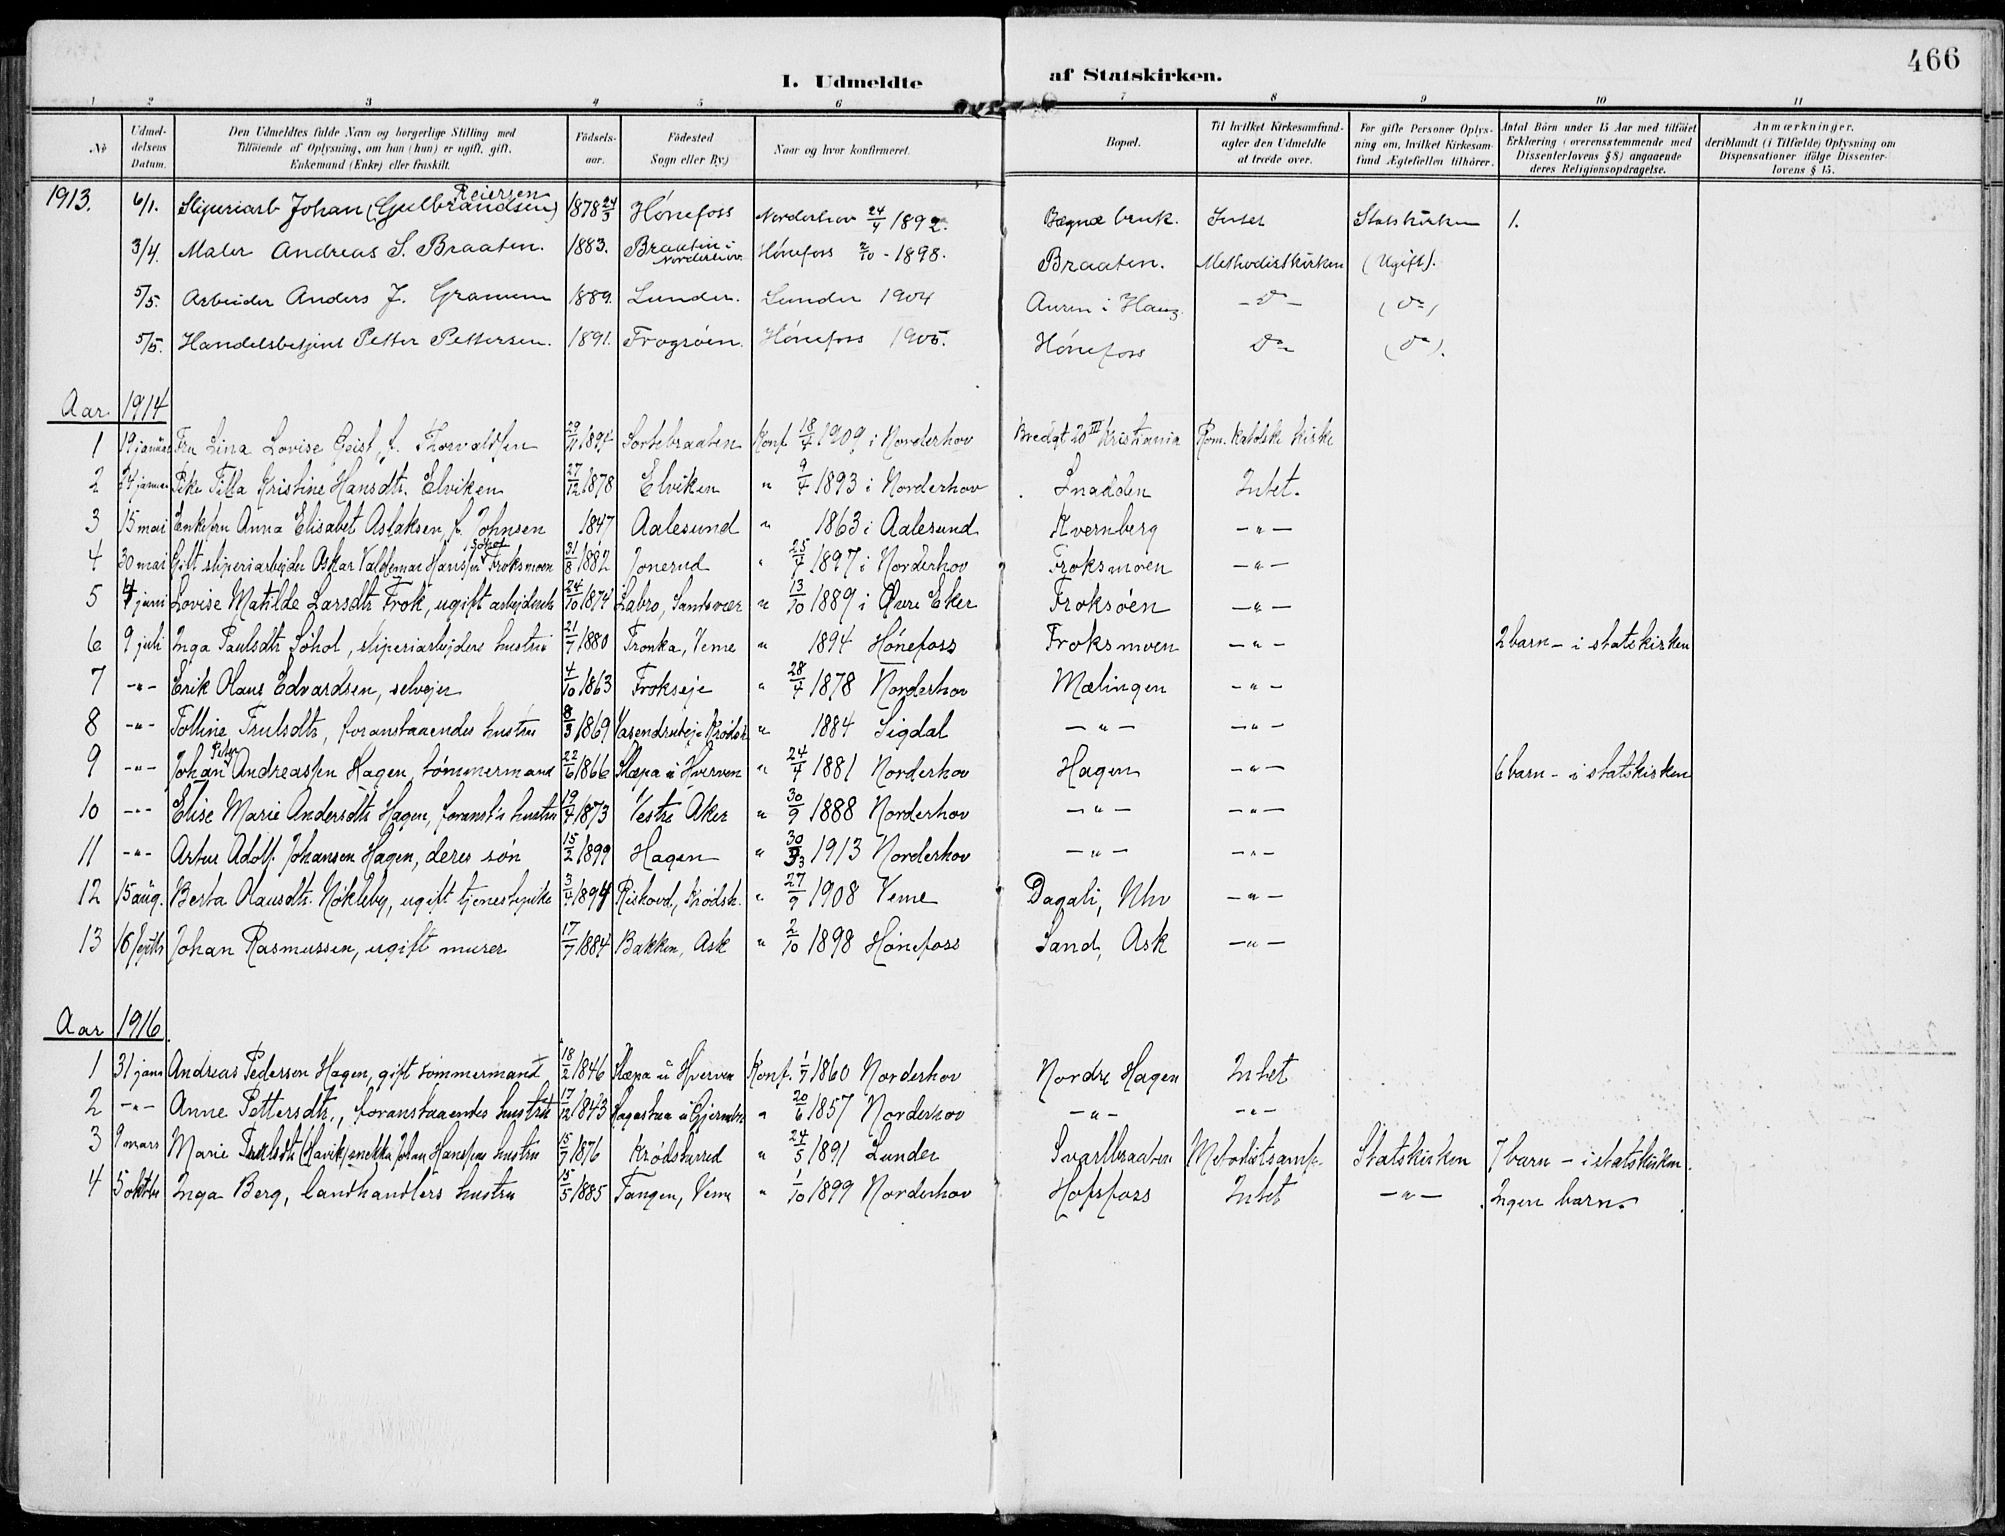 466
I. Udmeldte af Statskirken.
1 2 3 4 5 6 7 8 9 10 11
No Udmeldelsens Datum. Den Udmeldtes fulde Navn og borgerlige Stilling med Tilføiende af Oplysning, om han (hun) er ugift, gift, Enkemand (Enke) eller fraskilt. Fødselsaar. Fødested Sogn eller By.) Naar og hvor konfirmeret. Bopæl. Til hvilket Kirkesamfund agter den Udmeldte at træde over. For gifte Personer Oplysning om, hvilket Kirkesamfund Ægtefællen tilhører. Antal Børn under 15 Aar med tilføiet Erklæring (overensstemmende med Dissenterlovens § 8) angaaende deres Religionsopdragelse. Anmærkninger, deriblandt (i Tilfælde) Oplysning om Dispensationer ifølge Dissenterlovens § 15.
Reiersen
1913. 6/1. Sliperiarb Johan (Gulbrandsen) 1878 24/3 Hónefoss Norderhov 24/4 1892. Bægna bruk. Intet Statskirken 1.
3/4. Maler Andreas S. Braaten. 1883. Braaten i Norderhov Hónefoss 2/10 - 1898. Braaten. Methodistkirken (Ugift).
5/5. Arbeider Anders J. 1889. Lunder. Lunder 1904 Auren i Haug - do - (do)
5/5. Handelsbetjent Petter Pettersen. 1891. Frogsóen. Hónefoss 1905. Hónefoss do (do).
Aar 1914
1 19 januar Fru Lina Lovise Geist, f. Thorvaldsen 29/11 1894 Sortebraaten Konf 18/4 1909 i Norderhov Bredgt 20 III Kristiania Rom. Katolske kirke
2 24 januar Pike Tilla Kristine Hansdtr. Elviken 27/12 1878 Elviken " 9/4 1893 i Norderhov Snadden Intet.
3 15 mai Enkefru Anna Elisabet Aslaksen f. Johnsen 1847 Aalesund " 1863 i Aalesund Kvernberg - " -
Sóhol
4 30 mai Gift sliperiarbejder Oskar Valdemar Hanssen Froksmoen 31/8 1882 Jonerud " 25/4 1897 i Norderhov Froksmoen - " -
5 4 juni Lovise Matilde Larsdtr Frok, ugift 24/10 1874 Labro, Sandsvær " 13/10 1889 i Øvre Eker Froksóen - " -
6 9 juli Inga Paulsdtr Sóhol, sliperiarbejders hustru 21/7 1880 Tronka, Veme " 1894 Hónefoss Froksmoen - " - 2 barn - i statskirken
7 - " - Erik Olaus Edvardsen, selvejer 4/10 1863 Frokseje " 28/4 1878 Norderhov Mælingen - " -
8 - " - Tolline Trulsdtr, foranstaaendes hustru 8/3 1869 " 1884 Sigdal - " - - " -
Peter
9 - " - Johan Andreassen Hagen tómmermand 22/6 1866 Slæpa u Hverven " 24/4 1881 Norderhov Hagen - " - 6 barn - i statskirken
10 - " - Elise Marie Andersdtr Hagen, foranst's hustru 19/4 1873 Vestre Aker " 30/9 1888 Norderhov - " - - " -
11 - " - Artur Adolf Johansen Hagen, deres són 15/2 1899 Hagen " 30/3 1913 Norderhov - " - - " -
12 15 aug. Berta Olausdtr. Nókleby, ugift tjenestepike 3/4 1894 Riskovd, Krødsh. " 27/9 1908 Veme Dagali, Nhv - " -
13 16 septbr Johan Rasmussen, ugift murer 17/7 1884 Bakken, Ask " 2/10 1898 Hónefoss Sand, Ask - " -
Aar 1916
1 31 jan Andreas Pedersen Hagen, gift tømmermand 18/2 1846 Slæpa u Hverven Konf. 1/7 1860 Norderhov Nordre Hagen Intet
2 - " - Anne Pettersdtr., foranstaaendes hustru 17/12 1843 Hagastua u Gjermbu " 20/6 1857 Norderhov - " - - " -
3 9 mars Marie Trulsdtr (Havik) Johan Hansens hustru 15/7 1876 Krødsherred " 24/5 1891 Lunder Svartbraaten Metodistsamf. Statskirken 7 barn - i statskirken.
4 5 oktbr Inga Berg, landhandlers hustru 15/5 1885 Tangen, Veme " 1/10 1899 Norderhov Hofsfoss Intet - " - Ingen barn.